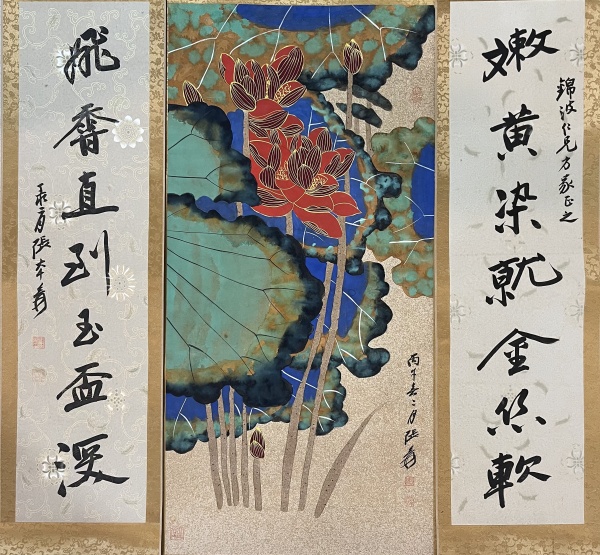 嫩黄染就金絲軟
錦波仁兄方家正之
丙午春二月張爰
飛直到玉盃深
張大千爰